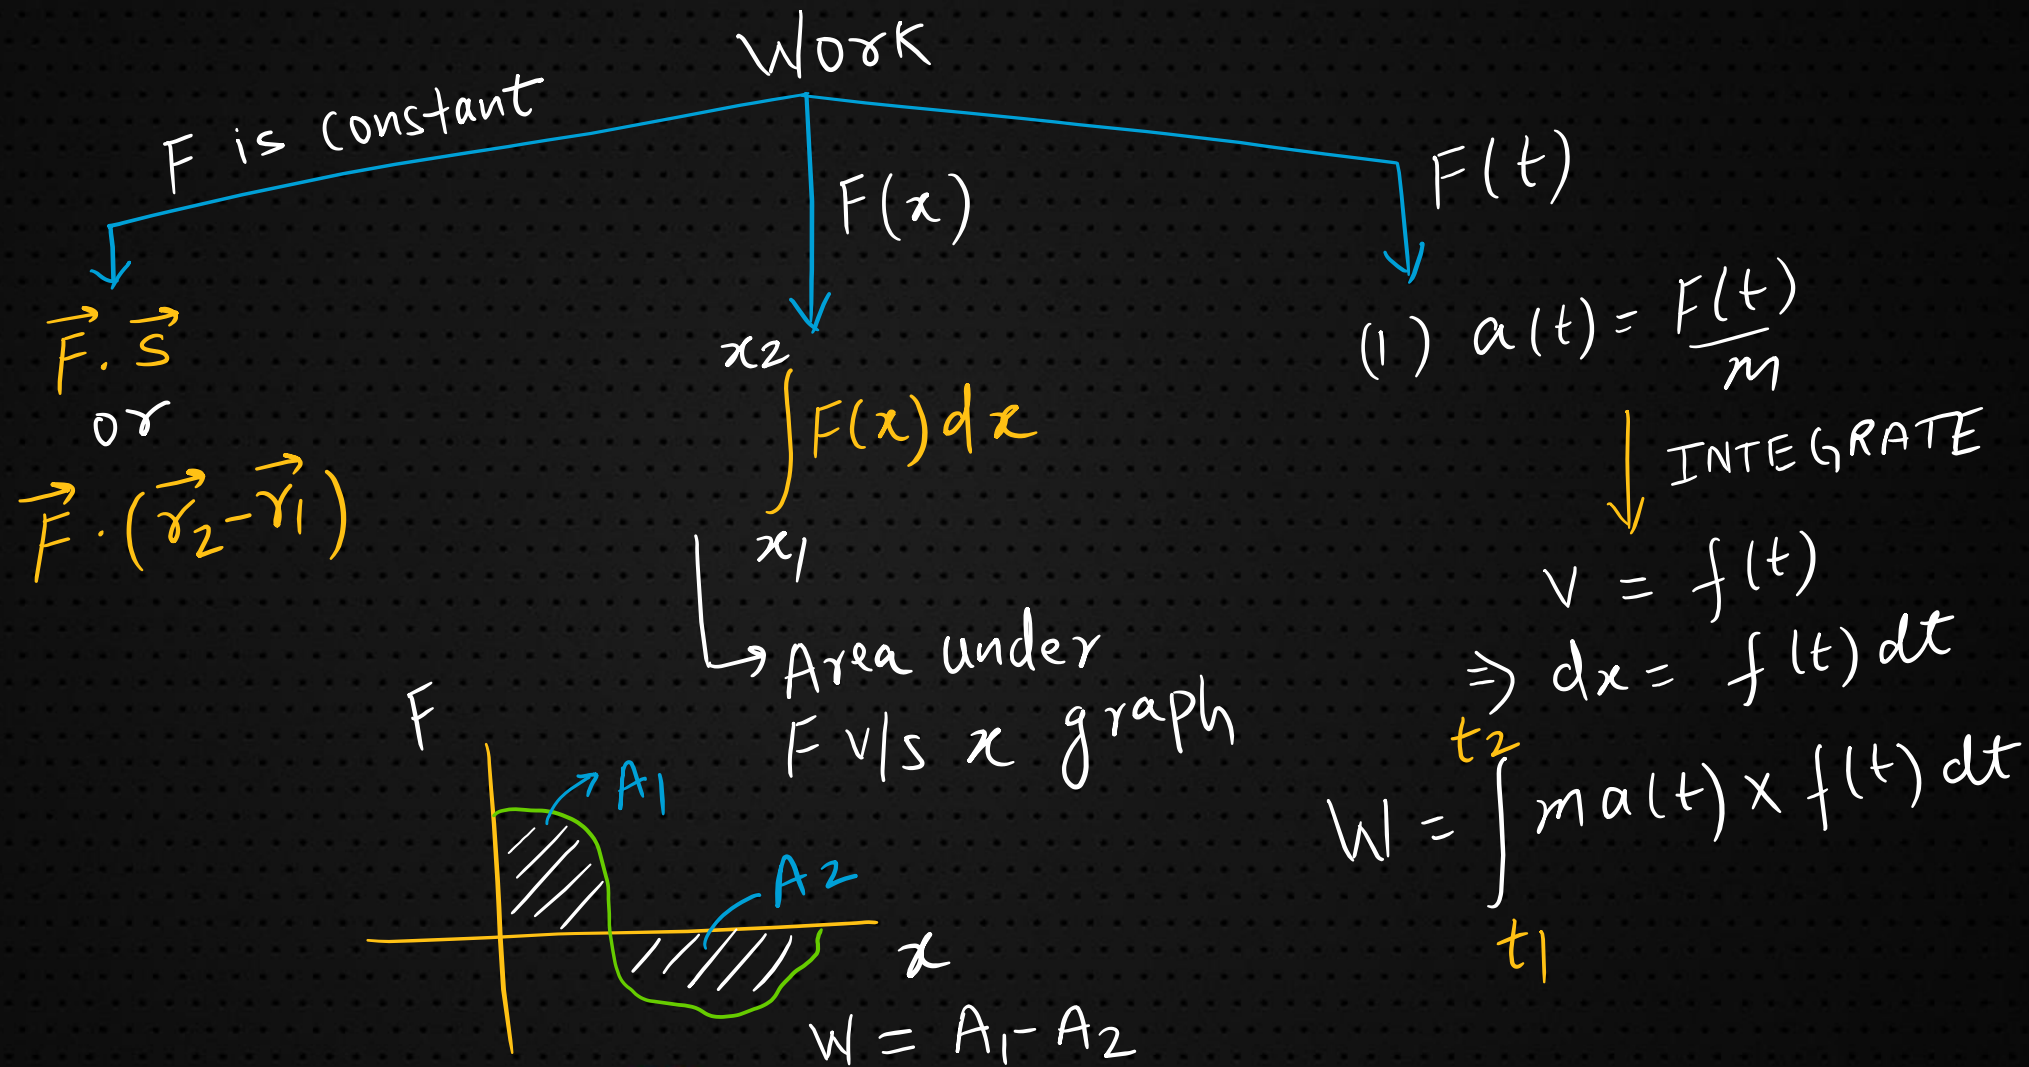 Work
F is constant
F(x)
F(t)
F⃗ . s⃗
or
F⃗ . (r⃗₂ - r⃗₁)
x2
∫ F(x) dx
x1
Area under
F v/s x graph
F
A1
A2
x
W = A₁ - A₂
(1) a(t) = F(t)/m
INTEGRATE
v = f(t)
⇒ dx = f(t) dt
t2
W = ∫ m a(t) × f(t) dt
t1